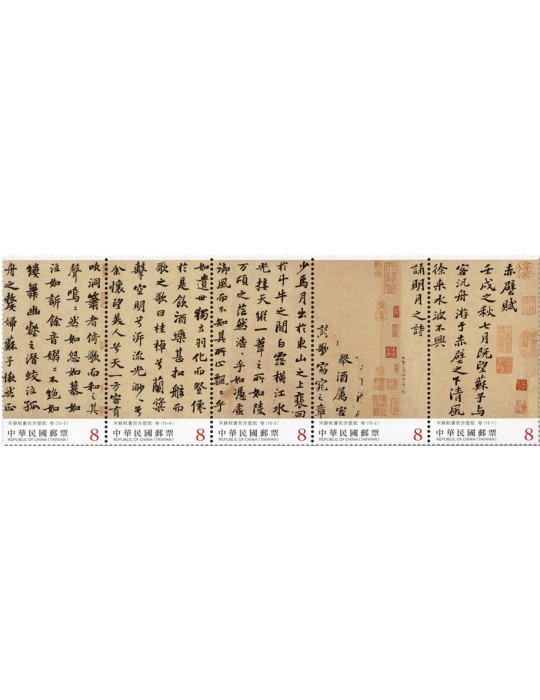 赤壁賦
壬戌之秋七月既望蘇子與
客泛舟游于赤壁之下清風
徐来水波不興
誦明月之詩
舉酒屬客
歌窈窕之章
少焉月出於東山之上裵回
於斗牛之間白露橫江水
光接天縱一葦之所如陵
万頃之茫然浩〻乎如憑虛
御風而不知其所止飄〻乎
如遺世獨立羽化而登僊
於是飲酒樂甚扣舷而
歌之歌曰桂棹兮蘭槳
擊空明兮泝流光渺〻兮
余懷望美人兮天一方客有
吹洞簫者倚歌而和之其
聲嗚〻然如怨如慕如
泣如訴餘音嫋〻不絕如
縷舞幽壑之潛蛟泣孤
舟之嫠婦蘇子愀然正
宋蘇軾書前赤壁賦 卷 (15-5)
中華民國郵票
REPUBLIC OF CHINA (TAIWAN)
8
宋蘇軾書前赤壁賦 卷 (15-4)
中華民國郵票
REPUBLIC OF CHINA (TAIWAN)
8
宋蘇軾書前赤壁賦 卷 (15-3)
中華民國郵票
REPUBLIC OF CHINA (TAIWAN)
8
宋蘇軾書前赤壁賦 卷 (15-2)
中華民國郵票
REPUBLIC OF CHINA (TAIWAN)
8
宋蘇軾書前赤壁賦 卷 (15-1)
中華民國郵票
REPUBLIC OF CHINA (TAIWAN)
8